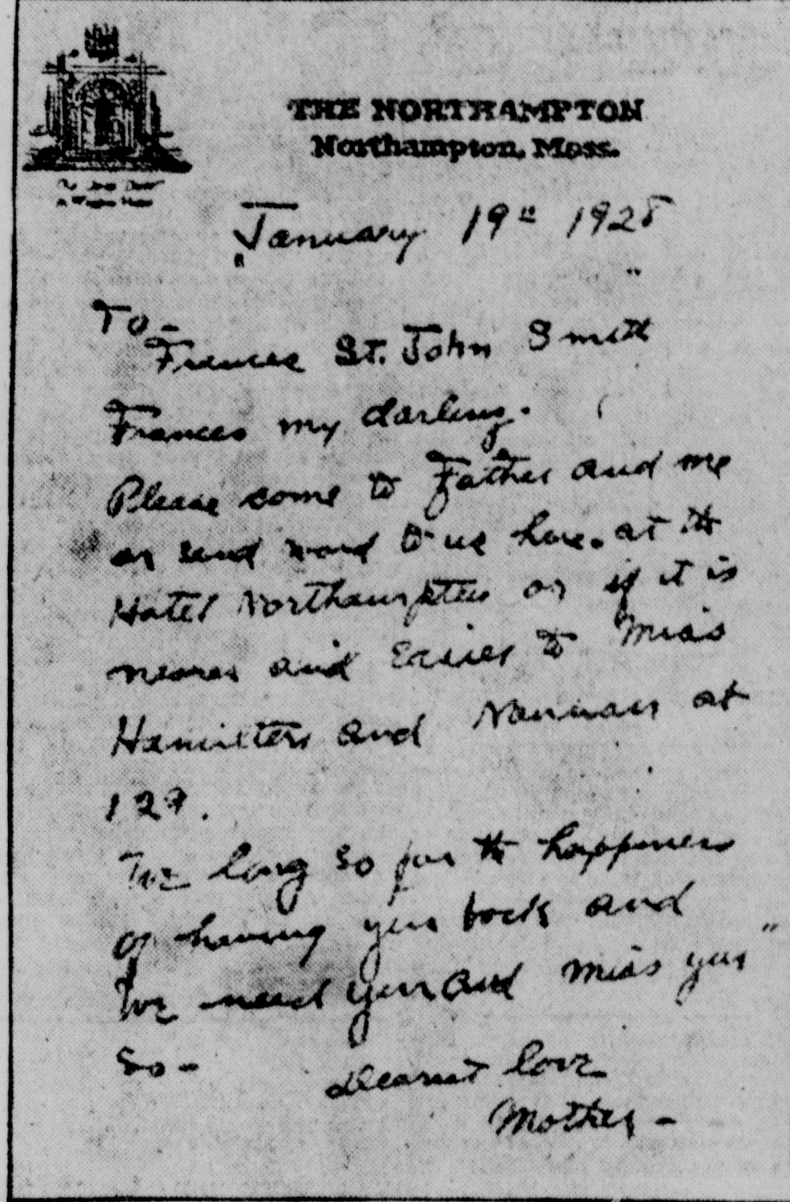 THE NORTHAMPTON
Northampton, Mass.
January 19th 1928
To-
Frances St. John Smith
Frances my darling.
Please come to Father and me
or send word to us here at the
Hotel Northampton or if it is
nearer and easier to Miss
Hamilton and at
129.
We long so for the happiness
of having you back and
We need you and miss you
So-
Dearest love
Mother-